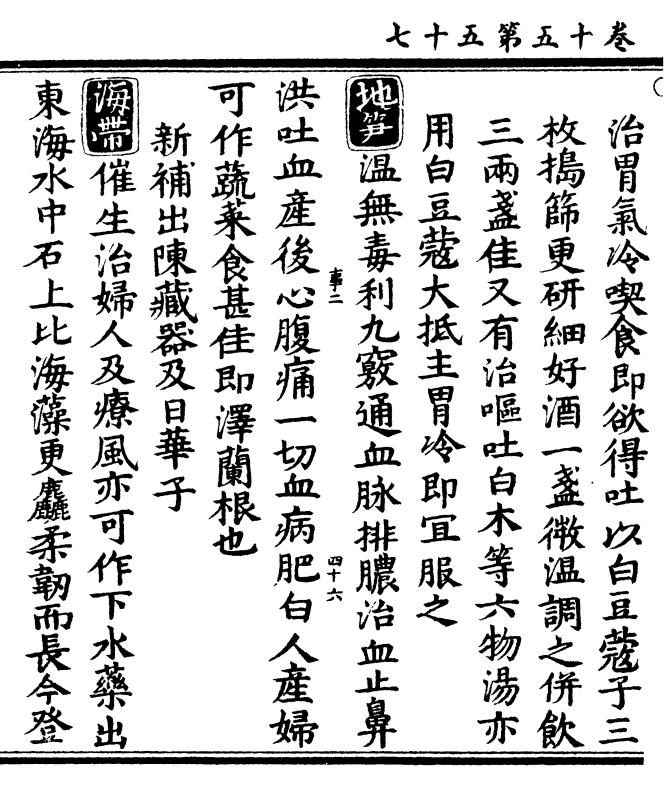 卷十五第五十七
治胃氣冷喫食即欲得吐以白豆蔻子三
枚搗篩更研細好酒一盞微溫調之併飲
三兩盞佳又有治嘔吐白木等六物湯亦
用白豆蔻大抵主胃冷即冝服之
地笋溫無毒利九竅通血脉排膿治血止鼻
事二
四十六
洪吐血產後心腹痛一切血病肥白人產婦
可作蔬菜食甚佳即澤蘭根也
新補出陳藏器及日華子
海帶催生治婦人及療風亦可作下水藥出
東海水中石上比海藻更麤柔韌而長今登